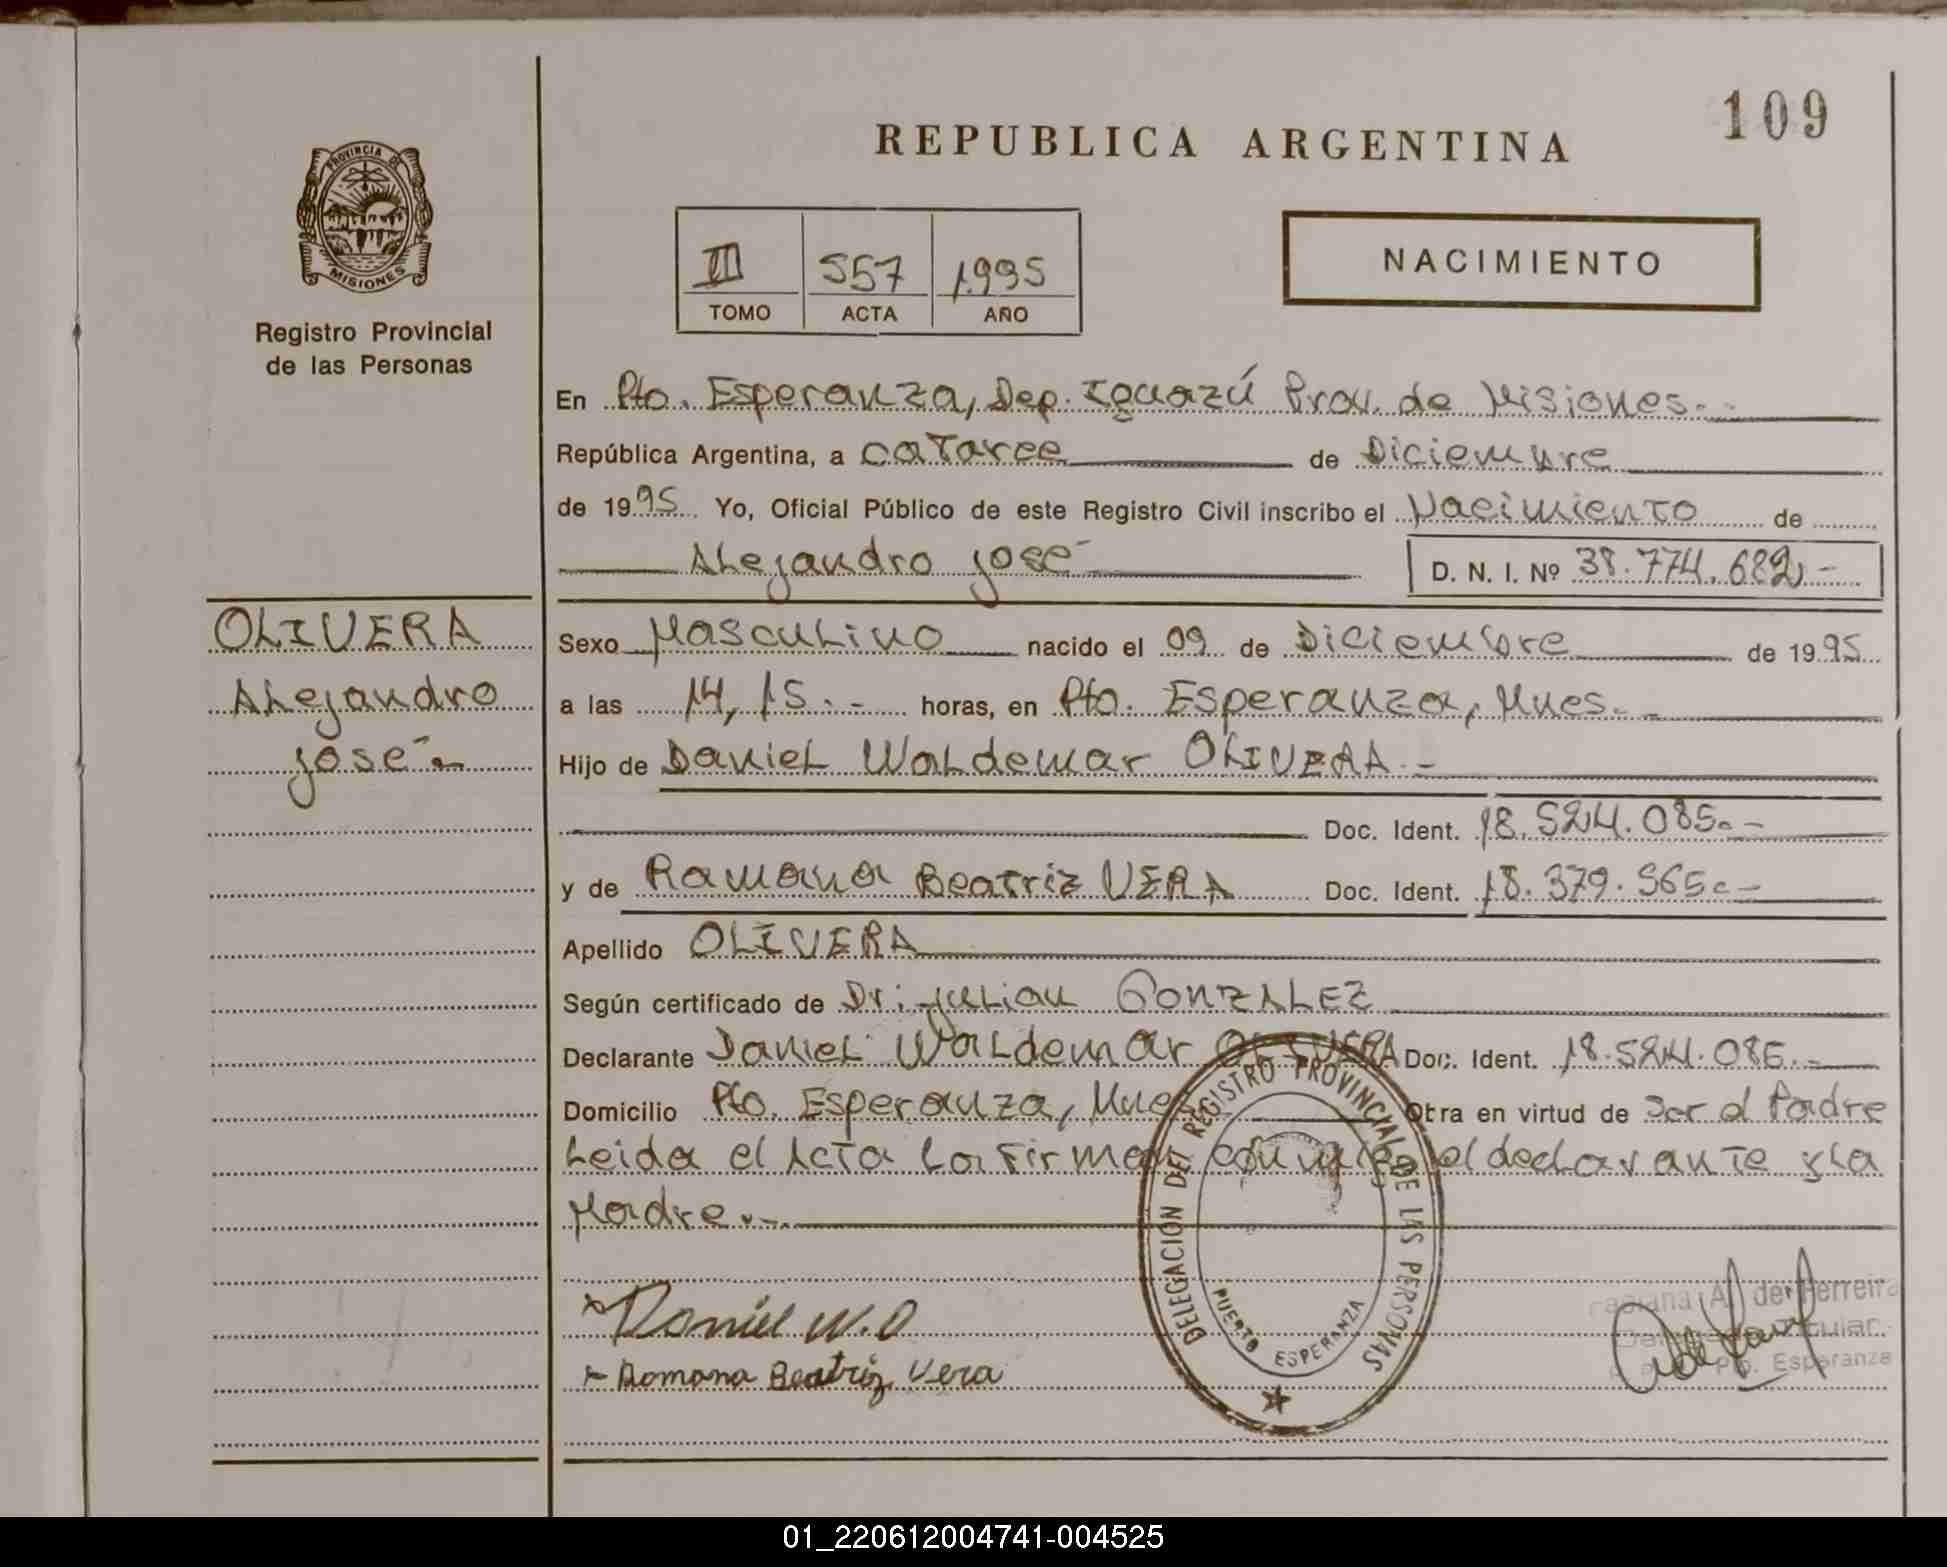 109
REPUBLICA ARGENTINA
PROVINCIA DE
MISIONES
Registro Provincial
de las Personas
III 557 1.995
TOMO ACTA AÑO
NACIMIENTO
En Pto. Esperanza, Dep. Iguazú Prov. de Misiones.-
República Argentina, a catorce de Diciembre
de 1995 Yo, Oficial Público de este Registro Civil inscribo el Nacimiento de
Alejandro José
D. N. I. Nº 38.774.682.-
OLIVERA
Alejandro
José.-
Sexo Masculino nacido el 09 de Diciembre de 1995
a las 14,15.- horas, en Pto. Esperanza, Mnes.-
Hijo de Daniel Waldemar OLIVERA.-
Doc. Ident. 18.524.085.-
y de Ramona Beatriz VERA Doc. Ident. 18.379.565.-
Apellido OLIVERA
Según certificado de Dr. Julian GONZALEZ
Declarante Daniel Waldemar OLIVERA Doc. Ident. 18.524.085.-
Domicilio Pto. Esperanza, Mnes Obra en virtud de Ser el Padre
Leida el Acta la firman conmigo el declarante y la
Madre.-
DELEGACION DEL REGISTRO PROVINCIAL DE LAS PERSONAS
PUERTO ESPERANZA
Daniel W.O
Romona Beatriz Vera
A. de Ferreira
Titular
Pto. Esperanza
01_220612004741-004525